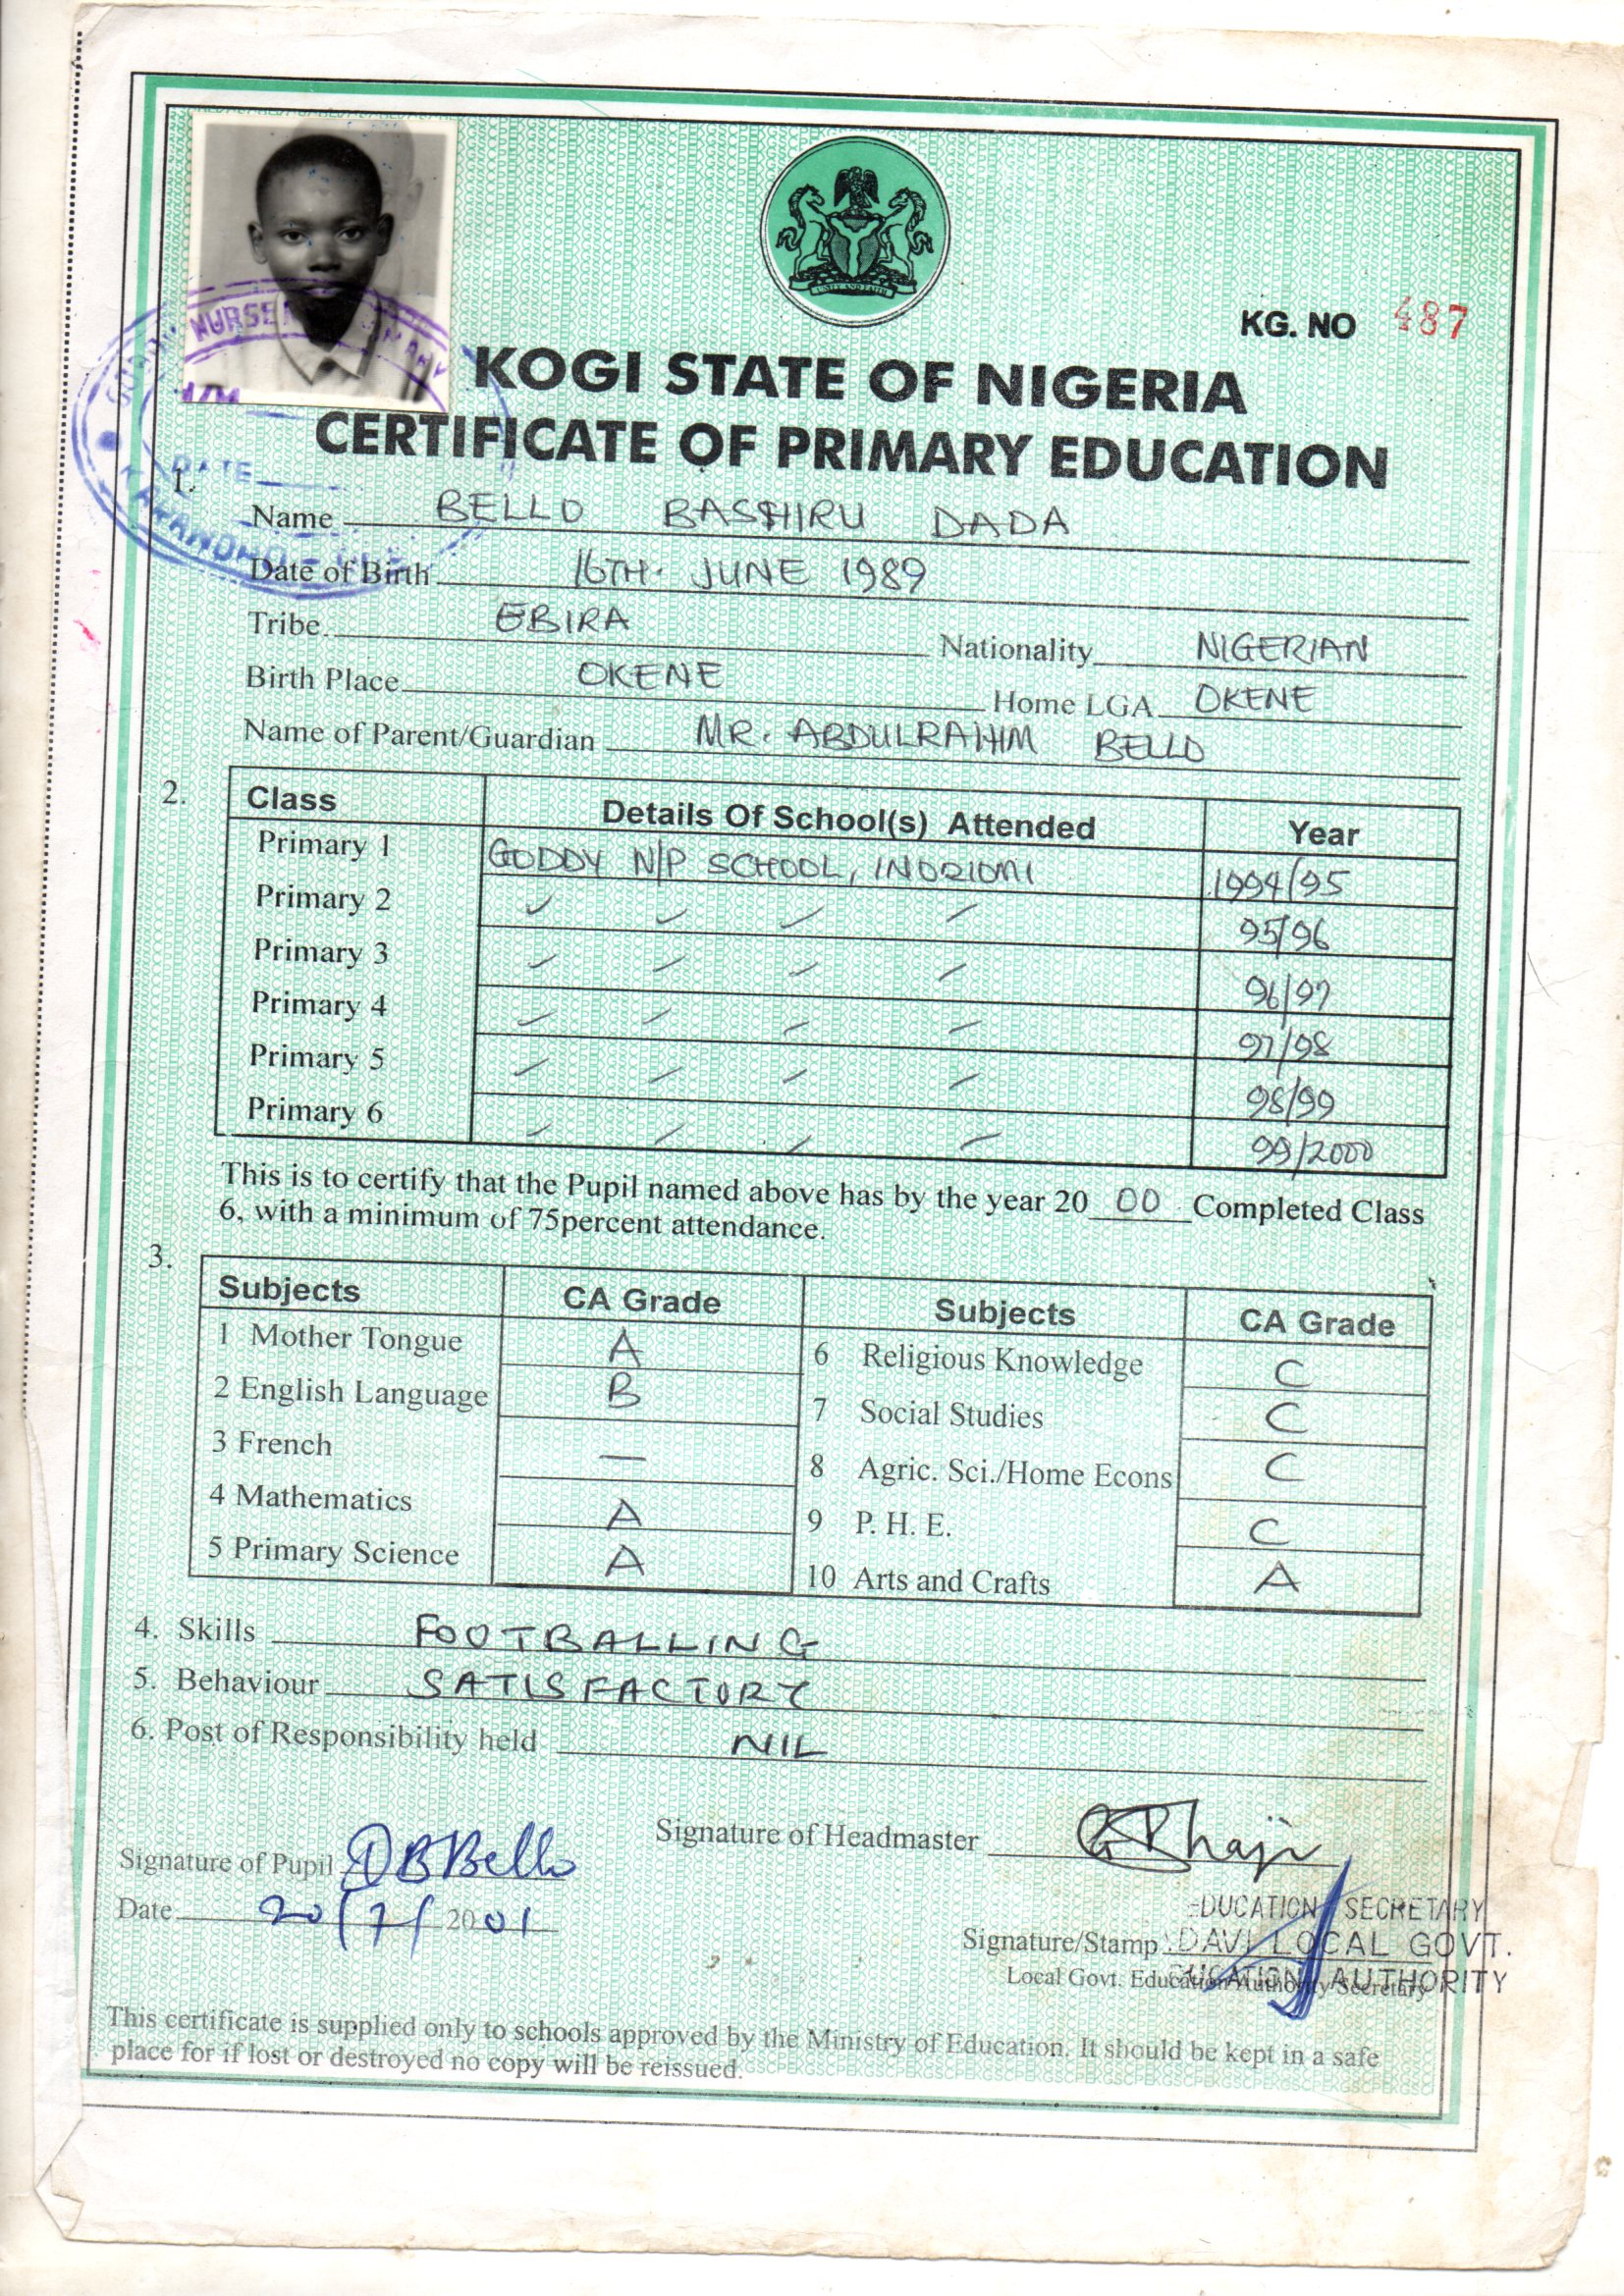 UNITY AND FAITH
KG. NO 487
KOGI STATE OF NIGERIA
CERTIFICATE OF PRIMARY EDUCATION
NURSE
DATE
1.
Name BELLO BASHIRU DADA
Date of Birth 16TH. JUNE 1989
Tribe EBIRA Nationality NIGERIAN
Birth Place OKENE Home LGA OKENE
Name of Parent/Guardian MR. ABDULRAHIM BELLO
2.
Class Details Of School(s) Attended Year
Primary 1 GODDY N/P SCHOOL, INORIOMI 1994/95
Primary 2 95/96
Primary 3 96/97
Primary 4 97/98
Primary 5 98/99
Primary 6 99/2000
This is to certify that the Pupil named above has by the year 20 00 Completed Class
6, with a minimum of 75percent attendance.
3.
Subjects CA Grade Subjects CA Grade
1 Mother Tongue A 6 Religious Knowledge C
2 English Language B 7 Social Studies C
3 French — 8 Agric. Sci./Home Econs C
4 Mathematics A 9 P. H. E. C
5 Primary Science A 10 Arts and Crafts A
4. Skills FOOTBALLING
5. Behaviour SATISFACTORY
6. Post of Responsibility held NIL
Signature of Pupil DBBello Signature of Headmaster
Date 20/7/ 20 01
EDUCATION SECRETARY
Signature/Stamp DAVI LOCAL GOVT.
Local Govt. Education Authority Secretary
EDUCATION AUTHORITY
This certificate is supplied only to schools approved by the Ministry of Education. It should be kept in a safe
place for if lost or destroyed no copy will be reissued.